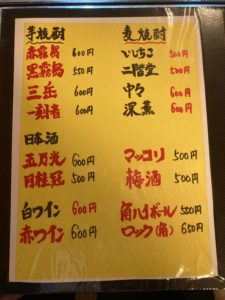 芋焼酎
赤霧島 600円
黒霧島 550円
三岳 600円
一刻者 600円
麦焼酎
いいちこ 500円
二階堂 500円
中々 600円
深薫 600円
日本酒
玉乃光 600円
月桂冠 500円
マッコリ 500円
梅酒 500円
白ワイン 600円
赤ワイン 600円
角ハイボール 550円
ロック(角) 650円